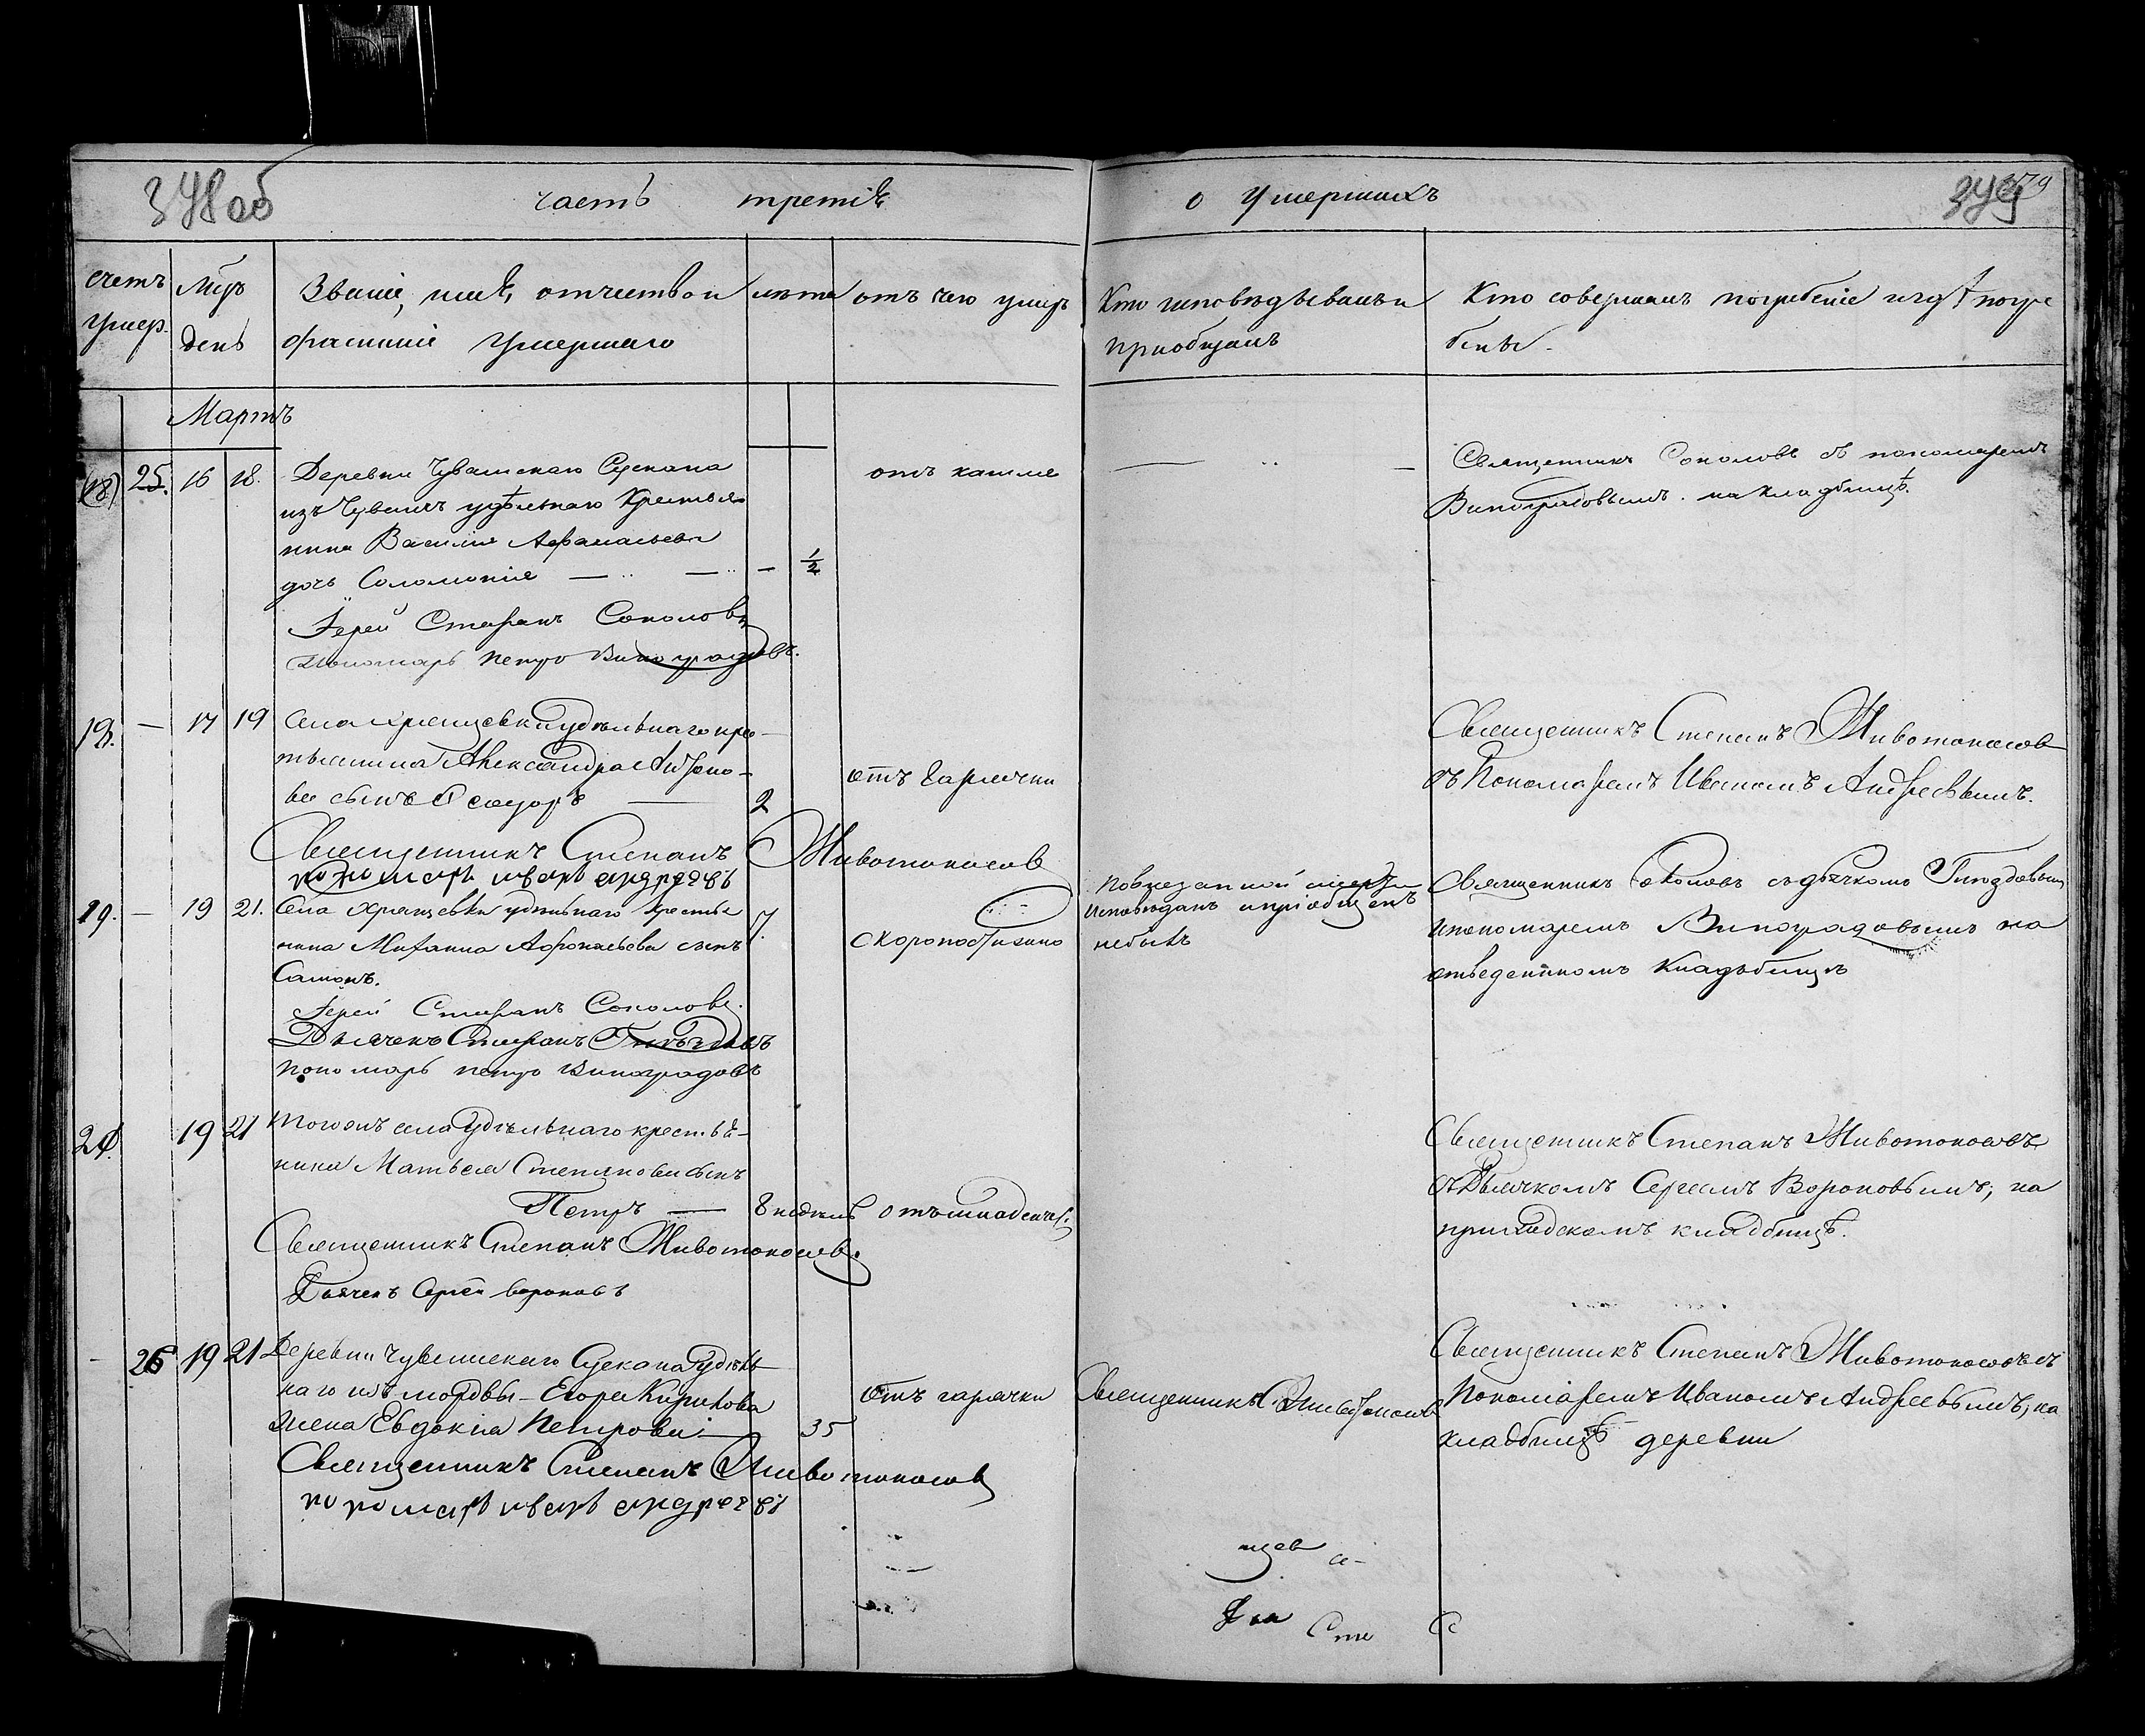 378 об
часть третія
о умершихъ
379
счетъ умер.
Мцъ день
Званіе, имя, отчество и фамиліе умершаго
лѣта
отъ чего умеръ
Кто исповѣдывалъ и пріобщалъ
Кто совершалъ погребеніе и гдѣ погребены.
Мартъ
25. 16 18.
Деревни Чувашскаго Сускана
изъ Чувашъ удѣльнаго Крестья
нина Василія Афанасьева
дочь Соломонія
1/2
отъ кашля
Священникъ Соколовъ съ пономаремъ
Виноградовымъ. на кладбищѣ.
Іерей Стефанъ Соколовъ
Пономарь Петръ Виноградовъ.
18. — 17 19
Села Хрящевки удѣльнаго кре-
тьянина Александра
ва сынъ
2
отъ Гарячки
Священникъ Степанъ Животоносовъ
съ Пономаремъ Иваномъ Андреевымъ.
Священникъ Степанъ Животоносовъ
пономарь иванъ андреевъ
19. — 19 21.
Села Хрящевки удѣльнаго крестья
нина Михаила Афонасьева сынъ
Самонъ.
7
скоропостижно
исповѣданъ и пріобщенъ
небылъ
Священникъ Соколовъ съ дьячкомъ Гнѣздовым
и пономаремъ Виноградовымъ на
отведенномъ Кладьбищѣ
Іерей Стефанъ Соколовъ.
Дьячекъ Стефанъ Гнѣздовъ
пономарь петръ Виноградовъ
19 21
Тогожъ села Удѣльнаго крестья-
нина Матвея Степанова сынъ
Петръ —
8 недель
отъ младенчес.
Священникъ Степанъ Животоносовъ
съ Дьячкомъ Сергеемъ Вороновымъ, на
приходскомъ кладбищѣ.
Священникъ Степанъ Животоносовъ.
Дьячекъ Сергей вороновъ
26 19 21
Деревни Чувашскаго Сускана Удѣль
наго изъ мордвы Егора Кирилова
жена Евдокія Петрова
35
Отъ гарячки
Священникъ С. Животоносовъ
Священникъ Степанъ Животоносовъ съ
Пономаремъ Иваномъ Андреевымъ, на
кладбищѣ деревни
Священникъ Степанъ Животоносовъ
пономарь иванъ андреевъ